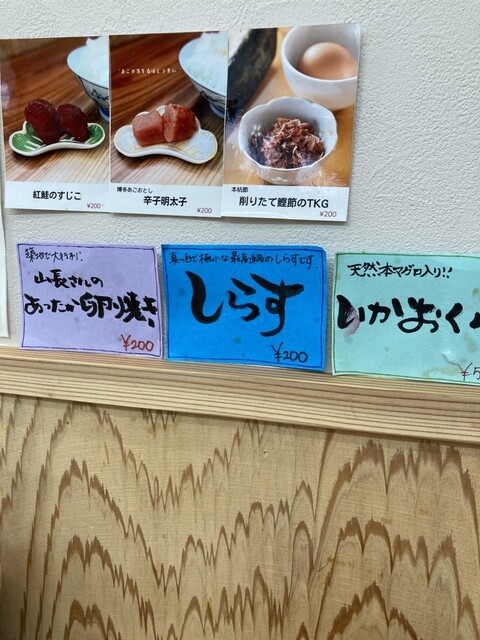 紅鮭のすじこ
¥200
あごが落ちるほどうまい
博多あごおとし
辛子明太子
¥200
本枯節
削りたて鰹節のTKG
¥200
築地で大行列!
山長さんの
あったか卵焼き
¥200
真っ白で極小な最高級のしらすです。
しらす
¥200
天然本マグロ入り!!
いかおく
¥5